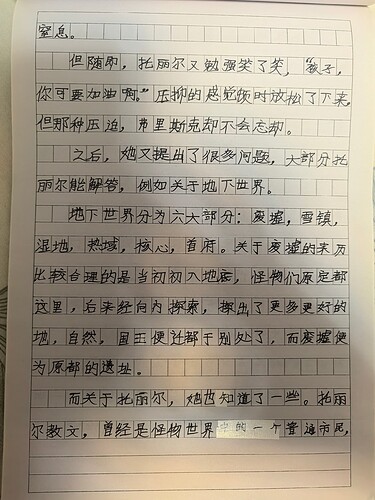 窒息。
但随即，托丽尔又勉强笑了笑，“孩子，
你可要加油啊。”压抑的感觉顿时放松了下来，
但那种压迫，弗里斯克却不会忘却。
之后，她又提出了很多问题，大部分托
丽尔能解答，例如关于地下世界。
地下世界分为六大部分：废墟，雪镇，
湿地，热域，核心，首府。关于废墟的来历
比较合理的是当初初入地底，怪物们原定都
这里，后来经向内探索，探出了更多更好的
地，自然，国王便迁都于别处了，而废墟便
为原都的遗址。
而关于托丽尔，她也知道了一些。托丽
尔教文，曾经是怪物世界中的一个普通市民，